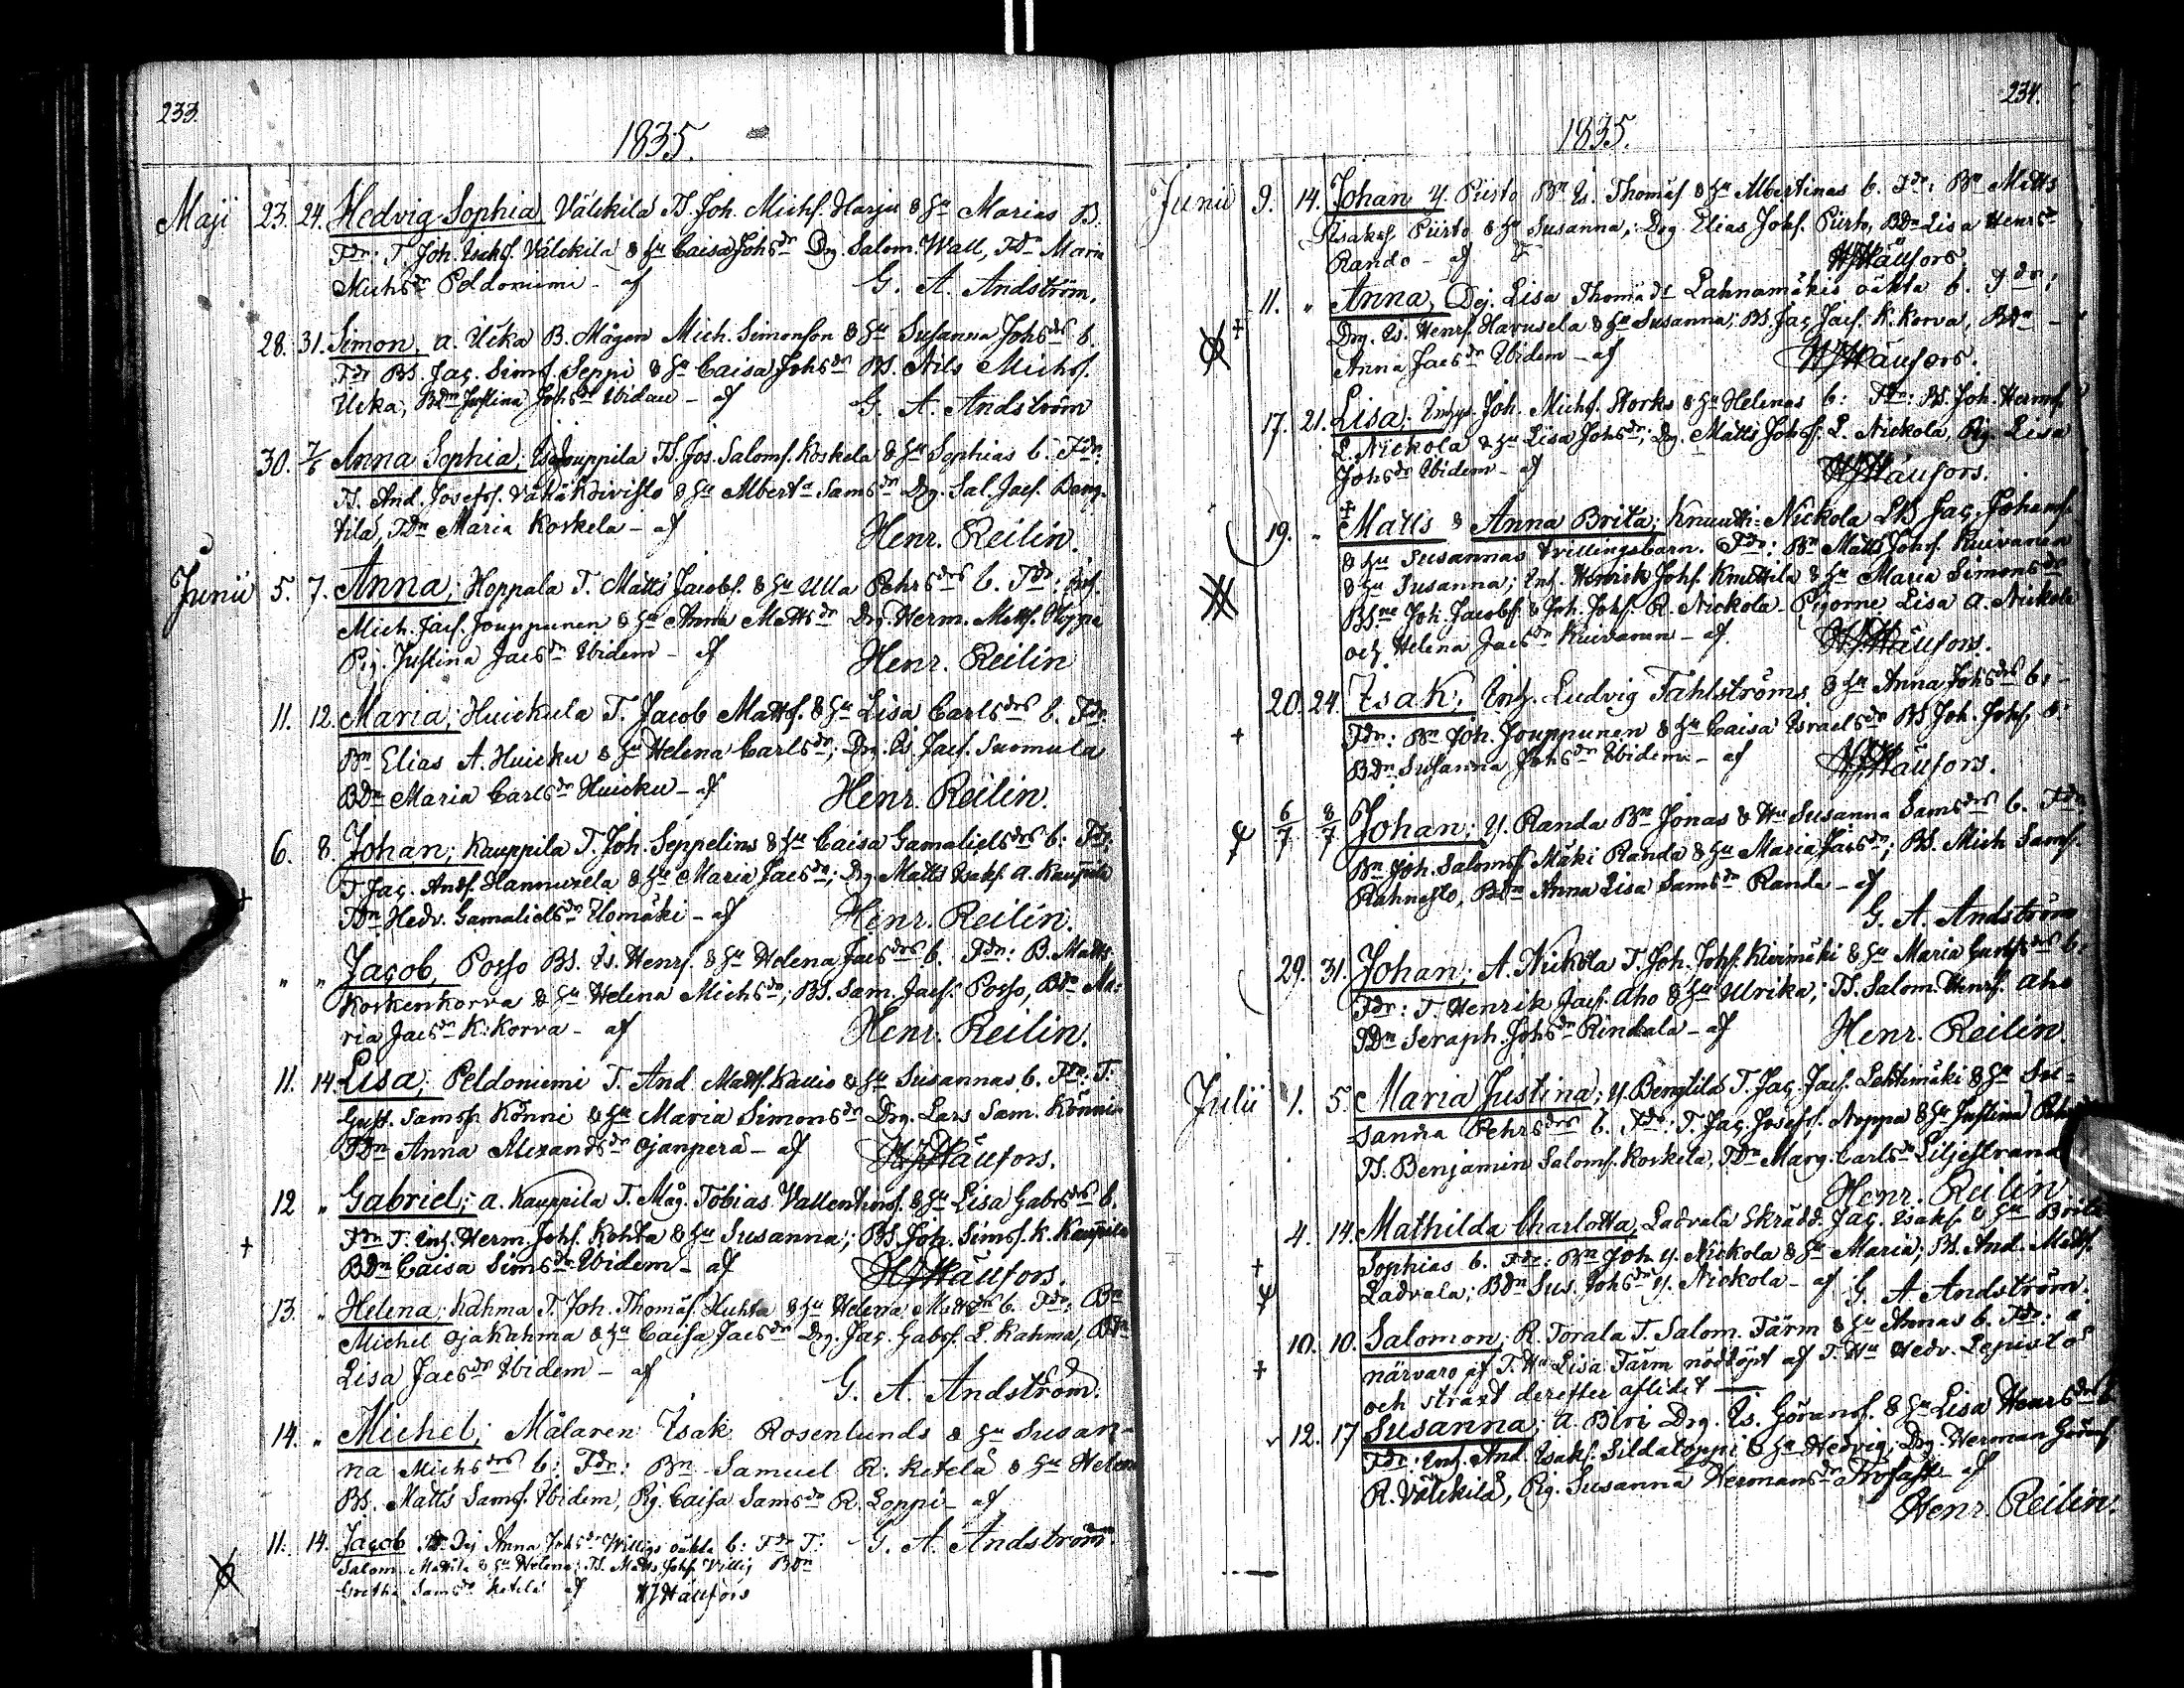 233.
1835.
Maji 23. 24. Hedvig Sophia Välckilä TS. Joh. Michs. Harju & Hu Marias B.
Fdr: T. Joh. Isaks. Välckilä & Hu Caisa Johsdr Drg. Salom. Wall, TDr Maria
Michsdr Peldoniemi - af G. A. Andström.
28. 31. Simon, a. Ucka B. Mågen Mich. Simonson & Hu Susanna Johsdrs b.
Fdr BS. Jac. Sims. Seppi & Hu Caisa Johsdr BS. Nils Michs.
Ucka, BDr Justina Johsdr Ibidem - af G. A. Andström
30. 7/6 Anna Sophia, Jouppila TS. Jos. Saloms. Koskela & Hu Sophias b. Fdr:
TS. And. Josefs. & Hu Alberta Samsdr Drg. Sal. Jacs. Beng-
tilä, TDr Maria Koskela - af Henr. Reilin.
Junii 5. 7. Anna; Hoppala T. Matts Jacobs. & Hu Ulla Pehrsdrs b. Fdr:
Mich. Jacs. Jouppunen & Hu Anna Mattsdr Drg. Herm. Matts.
Pig. Justina Jacsdr Ibidem - af Henr. Reilin
11. 12. Maria; Huickula T. Jacob Matts. & Hu Lisa Carlsdrs b. Fdr:
Bn Elias A. Huicku & Hu Helena Carlsdr; Drg. Is. Jacs. Suomula
BDr Maria Carlsdr Huicku - af Henr. Reilin.
6. 8. Johan; Kauppila T. Joh. Seppelins & Hu Caisa Gamalielsdrs b: Fdr:
T. Jac. Ands. Hannuxela & Hu Maria Jacsdr; Drg. Matts Isaks. a. Kauppila
TDr Hedv. Gamalielsdr Ilomäki - af Henr. Reilin.
" " Jacob, Posso BS. Is. Henrs. & Hu Helena Jacsdrs b. Fdr: B. Matts
Koskenkorva & Hu Helena Michsdr; BS. Sam. Jacs. Posso, BDr Ma-
ria Jacsdr K: Korva - af Henr. Reilin.
11. 14. Lisa; Peldoniemi T. And. Matts. Kallio & Hu Susannas b. Fdr: T.
Gust. Samss. Könni & Hu Maria Simonsdr Drg. Lars Sam. Könni
TDr Anna Alexandsdr Ojanperä - af Häufors.
12 " Gabriel; a. Kauppila T. Måg. Tobias Vallentins. & Hu Lisa Gabrsdrs b.
Fdr T. Inh. Herm. Johs. Kohta & Hu Susanna; BS. Joh. Simss. K. Kauppila
BDr Caisa Simsdr Ibidem - af Häufors.
13. " Helena; Kahma T. Joh. Thomäs. Huhta & Hu Helena Mattsdrs b. Fdr: Bn
Michel Ojakahma & Hu Caisa Jacsdr Drg. Jac. Gabrs. L. Kahma, BDr
Lisa Jacsdr Ibidem - af G. A. Andström.
14. " Michel; Målaren Isak Rosenlunds & Hu Susan-
na Michsdrs b: Fdr: Bn Samuel R. Ketelä & Hu Helena
BS. Matts Sams. Ibidem, Pig. Caisa Samsdr R. Loppi - af
G. A. Andström.
11. 14. Jacob Dej Anna Johsdr Willigs oäkta b: Fdr T:
Salom. Mattila & Hu Helena, TS. Matts Johs. Villi; BDr
Gretha Samsdr Ketelä af Häufors
234.
1835.
Junii 9. 14. Johan Y. Piirto Bn Is. Thomäs. & Hu Albertinas b. Fdr: Bn Matts
Isaks. Piirto & Hu Susanna; Drg. Elias Johs. Piirto, BDr Lisa Henrsdr
Rando - af Häufors.
11. " Anna, Dej. Lisa Thomädr Lahnamäkis oäkta b. Fdr:
Drg. Is. Henrs. Harusela & Hu Susanna; BS. Jac. Jacs. K. Korva, BDr
Anna Jacsdr Ibidem - af Häufors.
17. 21. Lisa; Inhys. Joh. Michs. Storks & Hu Helenas b: Fdr: BS. Joh. Herms.
L. Nickola & Hu Lisa Johsdr; Drg. Matts Johs. L. Nickola, Pig. Lisa
Johsdr Ibidem - af Häufors.
19. " Matts & Anna Brita; Knuuti-Nickola LB Jac. Johans.
& Hu Susannas tvillingsbarn. Fdr: Bn Matts Johs. Kuivanen
& Hu Susanna; Inh. Henrick Johs. Knuttila & Hu Maria Simonsdr
BSne Joh. Jacobs. & Joh. Johs. R. Nickola - Pigorne Lisa A. Nickola
och Helena Jacsdr Kuivanen - af Häufors.
20. 24. Isak; Inh. Ludvig Fahlströms & Hu Anna Johsdrs b: -
Fdr: Bn Joh. Jouppunen & Hu Caisa Israelsdr BS Joh. Johs. &
BDr Susanna Johsdr Ibidem - af Häufors.
6/7 8/7 Johan; Y. Randa Bn Jonas & Hu Susanna Samsdrs b. Fdr
Bn Joh. Salomss. Mäki Randa & Hu Maria Jacsdr; BS. Mich Sams.
Rahnasto, BDr Anna Lisa Samsdr Randa - af
G. A. Andström
29. 31. Johan; A. Nickola T. Joh. Johs. Kivimäki & Hu Maria Gustfsdrs b.
Fdr: T. Henrik Jacs. Aho & Hu Ulrika; TS. Salom. Henrs. Aho
TDr Seraph. Johsdr Rindala - af Henr. Reilin.
Julii 1. 5. Maria Justina; Y. Bengtilä T. Jac. Jacs. Lehtimäki & Hu Su-
sanna Pehrsdrs b. Fdr: T. Jac. Josefs. Noppa & Hu Justina
TS. Benjamin Saloms. Koskela, TDr Marg. Carlsdr Liljestrand
Henr. Reilin
4. 14. Mathilda Charlotta, Ladvala Skrädd. Jac. Isaks. & Hu Brita
Sophias b. Fdr: Bn Joh. Y. Nickola & Hu Maria; BS. And. Matts.
Ladvala; BDr Sus. Johsdr Y. Nickola - af G. A Andström.
10. 10. Salomon; R. Torala T. Salom. Färm & Hu Annas b. Fdr: a
närvaro af T. Hu Lisa Färm nöddöpt af T. Hu Hedv. Lepistö
och straxt derefter aflidit
12. 17 Susanna; a. Biri Drg. Is. Görans. & Hu Lisa Henrsdrs b
Fdr: Inh. And. Isaks. Sildaloppi & Hu Hedvig; Drg. Herman Görans
R. Välckilä, Pig. Susanna Hermansdr Trofast - af
Henr. Reilin.